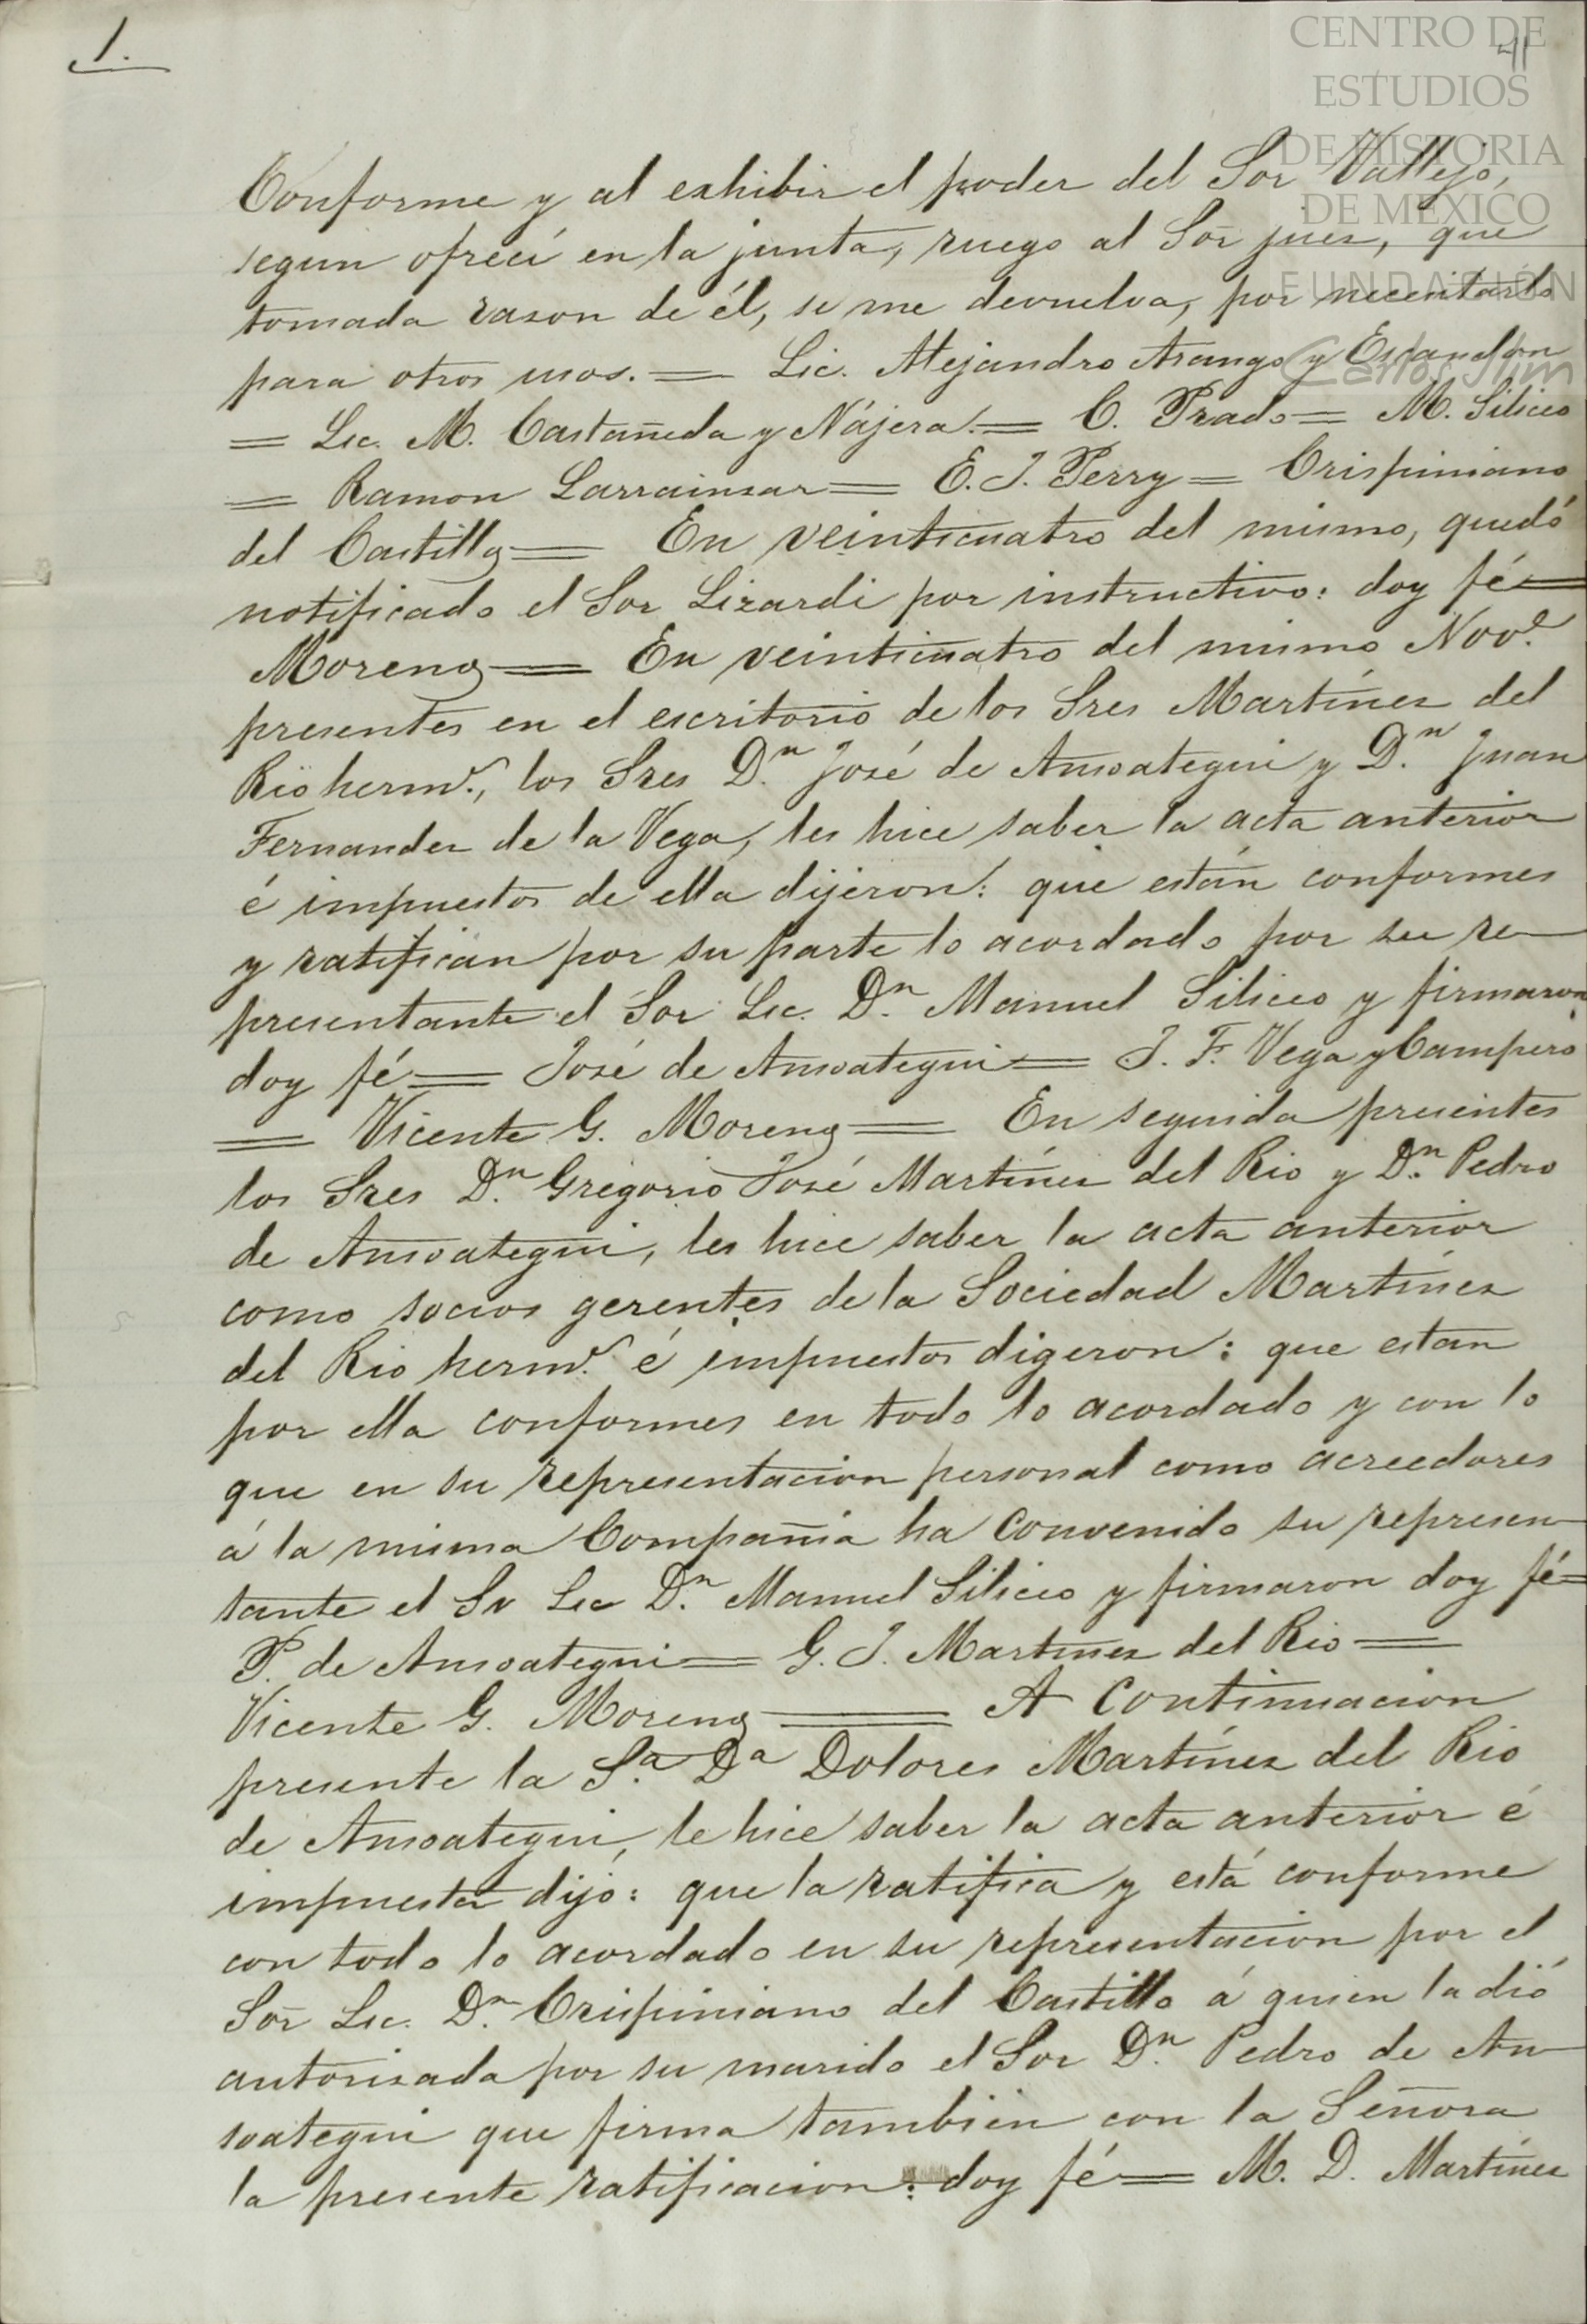 1.
41
CENTRO DE
ESTUDIOS
DE HISTORIA
DE MÉXICO
FUNDACIÓN
Carlos Slim
Conforme y al exhibir el poder del Sor Vallejo,
segun ofrecí en la junta, ruego al Sor juez, que
tomada razon de él, se me devuelva, por necesitarlo
para otros usos. = Lic. Alejandro Arango y Escandon
= Lic. M. Castañeda y Nájera. = C. Prado = M. Siliceo
= Ramon Larrainzar = E. J. Perry = Crispiniano
del Castillo = En veinticuatro del mismo, quedó
notificado el Sor Lizardi por instructivo: doy fé =
Moreno = En veinticuatro del mismo Nove.
presentes en el escritorio de los Sres Martínez del
Rio herms., los Sres Dn. José de Ansoategui y Dn. Juan
Fernandez de la Vega, les hice saber la acta anterior
é impuestos de ella dijeron: que están conformes
y ratifican por su parte lo acordado por su re
presentante el Sor Lic. Dn. Manuel Siliceo y firmaron
doy fé = José de Ansoategui = J. F. Vega y Campero
= Vicente G. Moreno = En seguida presentes
los Sres Dn. Gregorio José Martínez del Rio y Dn. Pedro
de Ansoategui, les hice saber la acta anterior
como socios gerentes de la Sociedad Martínez
del Rio herms. é impuestos digeron: que estan
por ella conformes en todo lo acordado y con lo
que en su representacion personal como acreedores
á la misma Compañia ha convenido su represen
tante el Sr Lic Dn. Manuel Siliceo y firmaron doy fé =
P. de Ansoategui = G. J. Martinez del Rio =
Vicente G. Moreno = A continuacion
presente la Sa. Da Dolores Martínez del Rio
de Ansoategui, le hice saber la acta anterior é
impuesta dijo: que la ratifica y está conforme
con todo lo acordado en su representacion por el
Sor Lic. Dn. Crispiniano del Castillo á quien la dió
autorizada por su marido el Sor Dn. Pedro de An
soategui que firma tambien con la Señora
la presente ratificacion: doy fé = M. D. Martínez